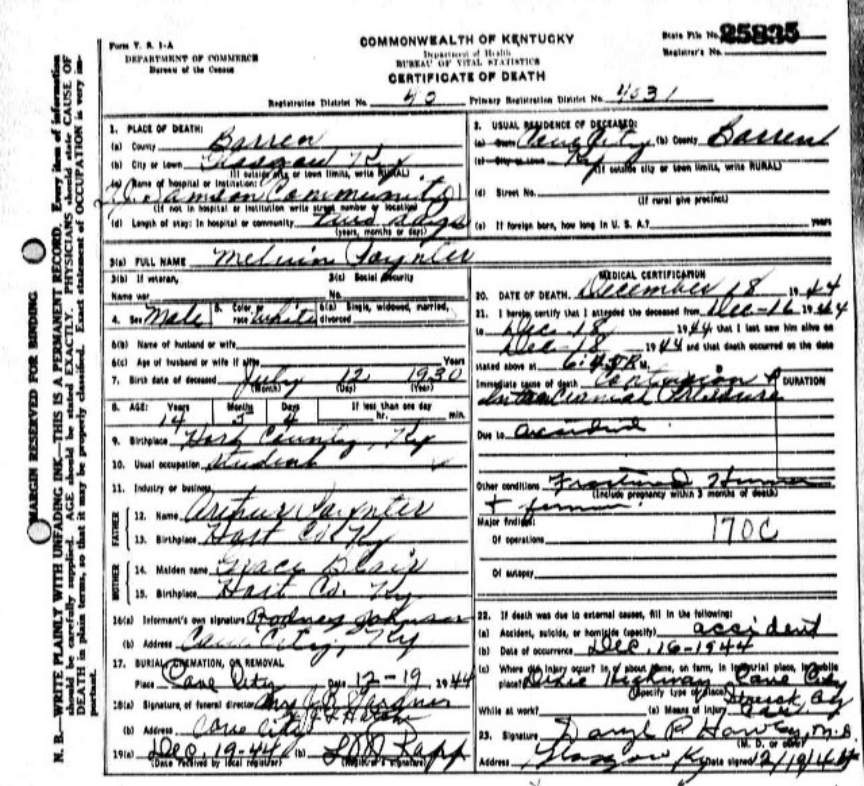 Form V. S. 1-A
DEPARTMENT OF COMMERCE
Bureau of the Census
COMMONWEALTH OF KENTUCKY
Department of Health
BUREAU OF VITAL STATISTICS
CERTIFICATE OF DEATH
State File No. 25835
Registrar's No.
Registration District No. 40 Primary Registration District No. 4031
MARGIN RESERVED FOR BINDING
N. B.—WRITE PLAINLY WITH UNFADING INK—THIS IS A PERMANENT RECORD. Every item of information
should be carefully supplied. AGE should be stated EXACTLY. PHYSICIANS should state CAUSE OF
DEATH in plain terms, so that it may be properly classified. Exact statement of OCCUPATION is very im-
portant.
1. PLACE OF DEATH:
(a) County Barren
(b) City or town Glasgow Ky
(If outside city or town limits, write RURAL)
(c) Name of hospital or institution:
Community
(If not in hospital or institution write street number or location)
(d) Length of stay: In hospital or community two days
(years, months or days)
2. USUAL RESIDENCE OF DECEASED:
(a) State Cave City (b) County Barren
(c) City or town Ky
(If outside city or town limits, write RURAL)
(d) Street No.
(If rural give precinct)
(e) If foreign born, how long in U. S. A.? years
3(a) FULL NAME Melvin Poynter
3(b) If veteran, 3(c) Social Security
Name war No.
4. Sex Male 5. Color or race White 6(a) Single, widowed, married, divorced
6(b) Name of husband or wife
6(c) Age of husband or wife if alive Years
7. Birth date of deceased July 12 1930
(Month) (Day) (Year)
8. AGE: Years Months Days If less than one day
14 5 4 hr. min.
9. Birthplace Hart County, Ky
10. Usual occupation Student
11. Industry or business
FATHER
12. Name Arthur Poynter
13. Birthplace Hart Co Ky
MOTHER
14. Maiden name Grace Blair
15. Birthplace Hart Co. Ky
16(a) Informant's own signature Rodney Johnson
(b) Address Cave City, Ky
17. BURIAL, CREMATION, OR REMOVAL
Place Cave City Date 12-19, 1944
18(a) Signature of funeral director Mrs
(b) Address Cave City
19(a) Dec. 19-44 (b) Rapp
(Date received by local registrar) (Registrar's signature)
MEDICAL CERTIFICATION
20. DATE OF DEATH December 18 1944
21. I hereby certify that I attended the deceased from Dec-16 1944
to Dec-18 1944 that I last saw him alive on
Dec-18 1944 and that death occurred on the date
stated above at 6:45 P. M.
Immediate cause of death Contusion + DURATION
Intracranial Pressure
Due to accident
Other conditions Fractured Humerus
(Include pregnancy within 3 months of death)
+ femur
Major findings:
Of operations 170C
Of autopsy
22. If death was due to external causes, fill in the following:
(a) Accident, suicide, or homicide (specify) accident
(b) Date of occurrence Dec. 16-1944
(c) Where did injury occur? in or about home, on farm, in industrial place, in public
place? Dixie Highway Cave City
(Specify type of place) Struck by
While at work? (e) Means of injury Car
23. Signature Daryl P. M.D.
(M. D. or other)
Address Glasgow Ky Date signed 12/19/44